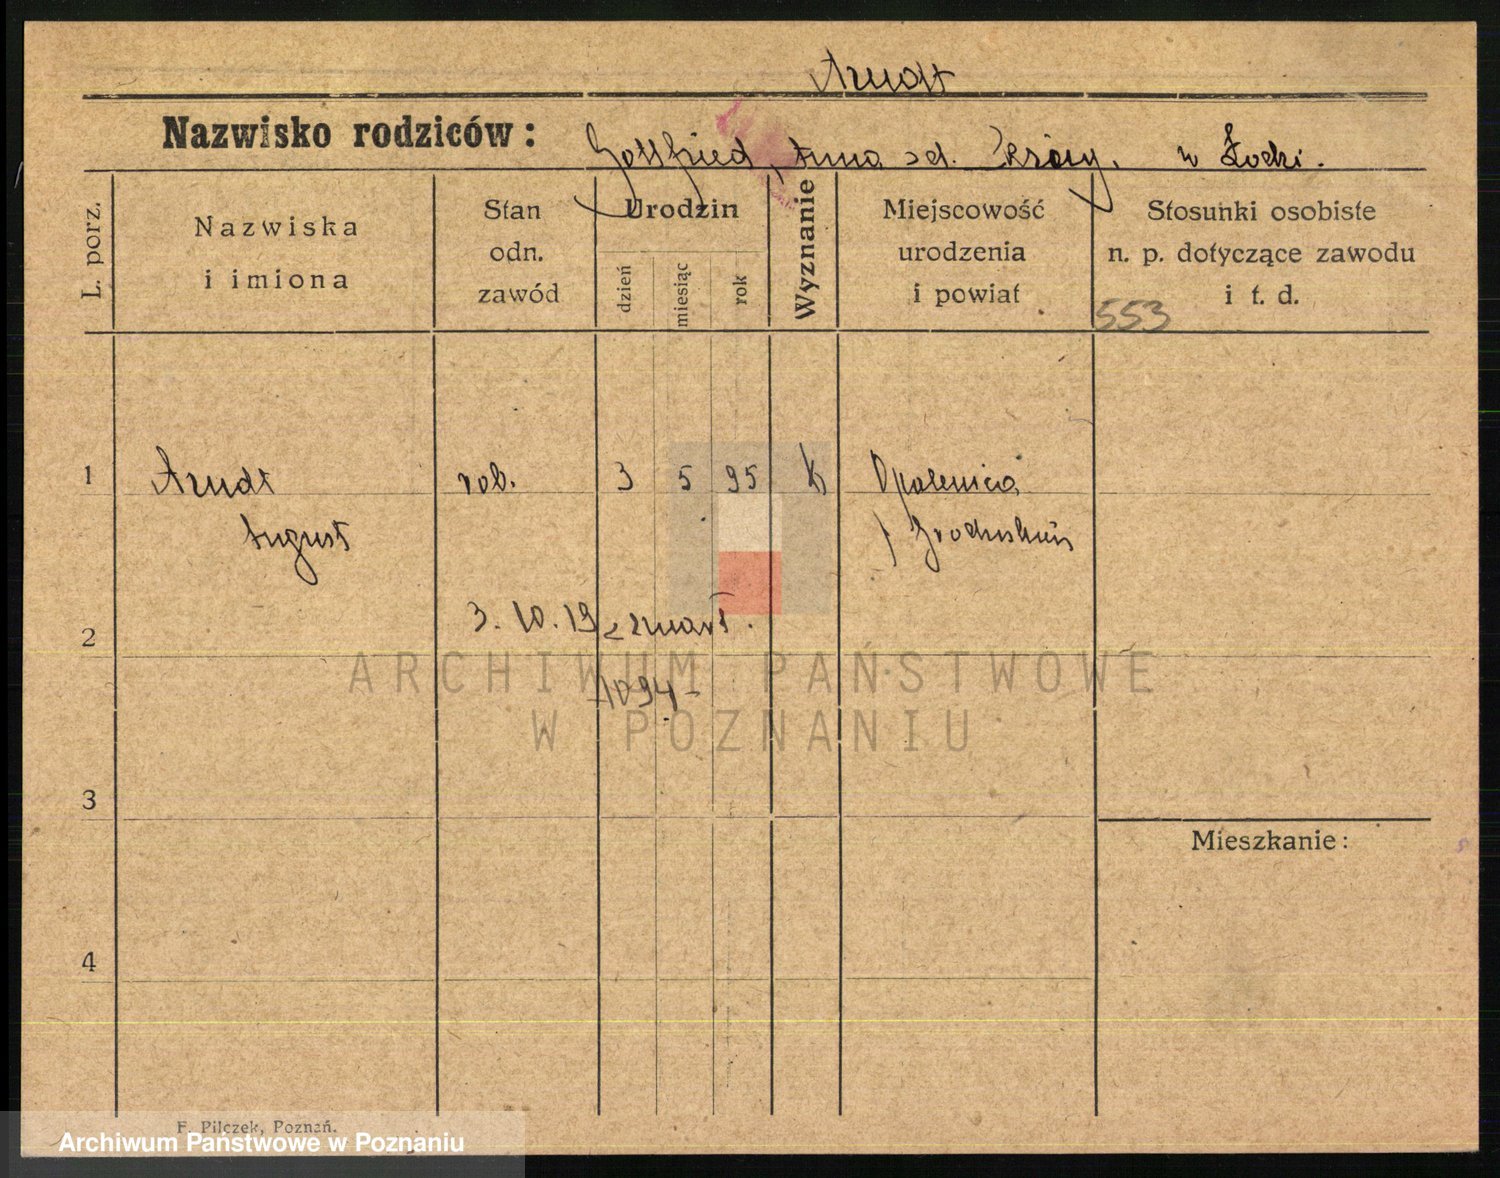 Arndt
Nazwisko rodziców: Gottfried, Anna w Łodzi.
L. porz.
Nazwiska i imiona
Stan odn. zawód
Urodzin
dzień
miesiąc
rok
Wyznanie
Miejscowość urodzenia i powiat
Stosunki osobiste n. p. dotyczące zawodu i t. d.
553
1 Arndt rob. 3 5 95 K Opalenica
August
3. 10. 19 zmarł.
2
ARCHIWUM PAŃSTWOWE
1094
W POZNANIU
3
Mieszkanie:
4
F. Pilczek, Poznań.
Archiwum Państwowe w Poznaniu